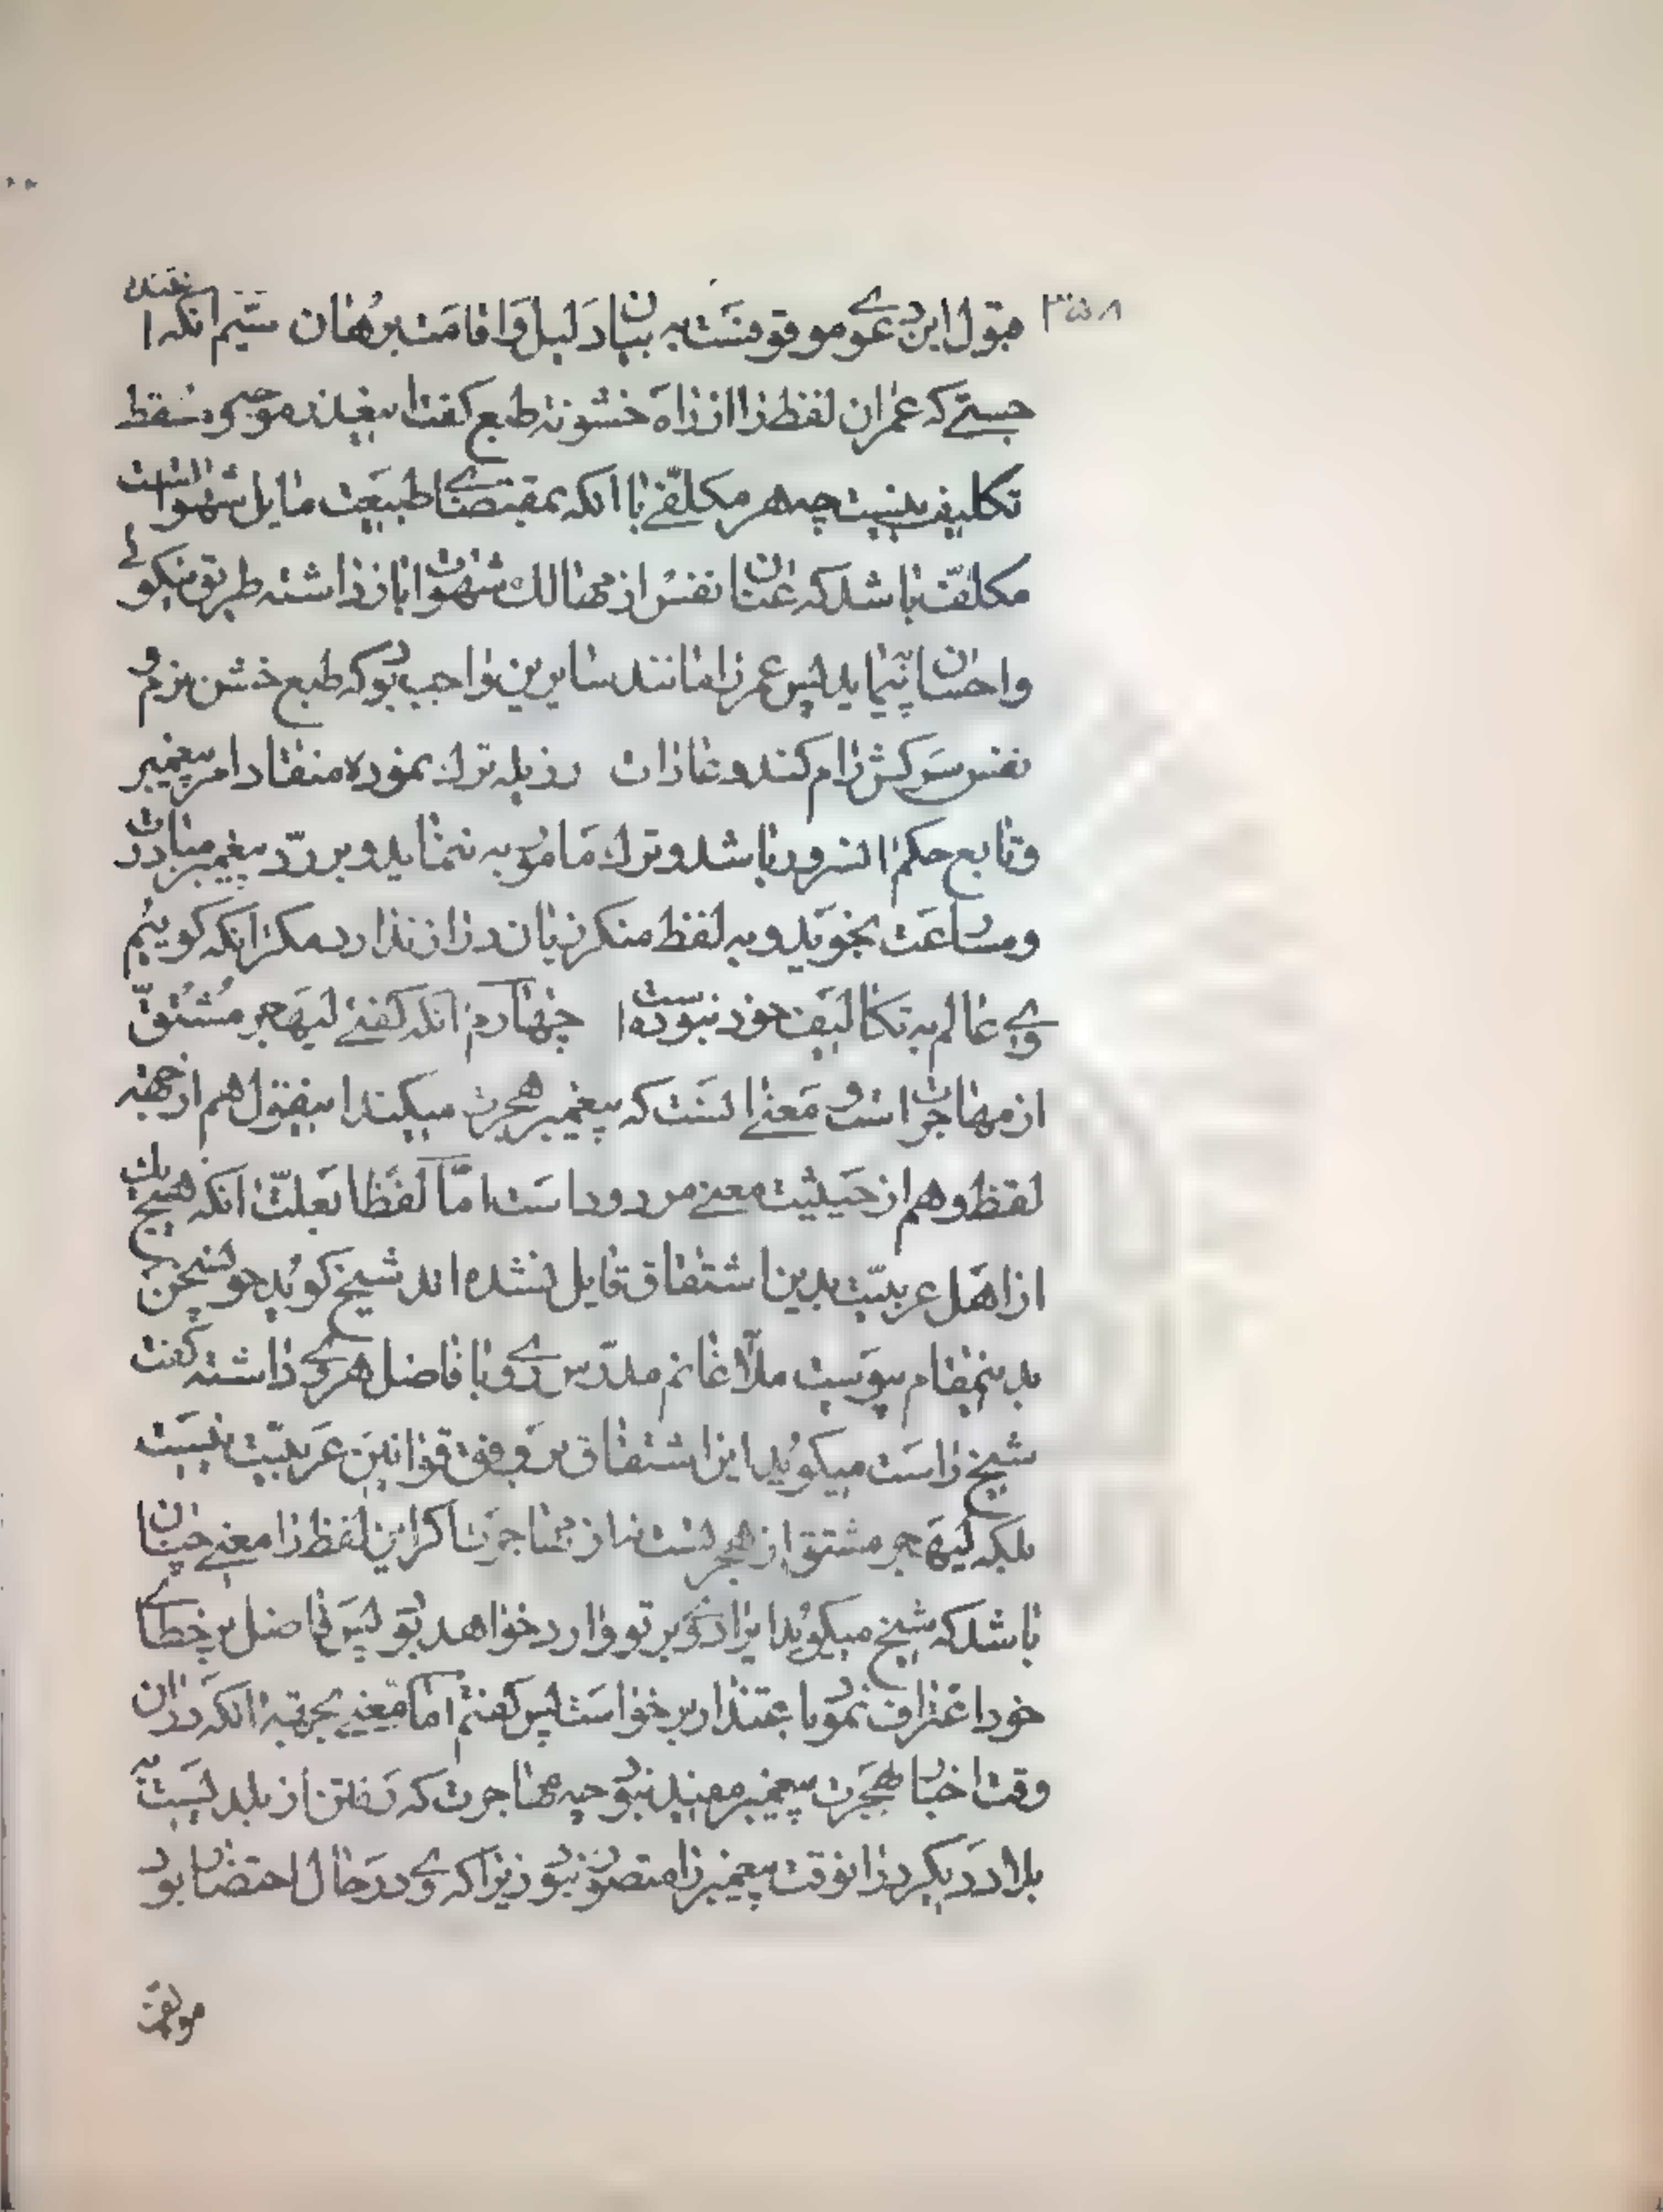 ۳۵۸
قبول این دعوی موقوفست به بیان دلیل و اقامت برهان سیّم انکه
جستے که عمر ان لفظ را از راه خشونه طبع کفت این عذر موجه و مسقط
تکلیف نیست چه هر مکلّفے با انکه بمقتضای طبیعت مایل شهوات است
مکلّف باشد که عنان نفس از مهالك شهوات باز داشته طریق نیکوئے
و احسان پیماید پس عمر را مانند سایرین واجب بود که طبع خشن نرم و
نفس سرکش رام کند و عادات رذیله ترك نموده منقاد امر پیغمبر
و تابع حکم ان سرور باشد و ترك مامور به ننماید و بر ردّ پیغمبر مبادرت
و مسارعت نجوید و به لفظ منکر زبان دراز ندارد مکر انکه کوییم
وے عالم به تکالیف خود نبوده است چهارم انکه کفتے لیهجر مشتقّ
از مهاجرت است و معنے انست که پیغمبر هجرت میکند این قول هم از جهة
لفظ و هم از حیثیت معنے مردود است امّا لفظا بعلّت انکه هیچ یك
از اهل عربیّت بدین اشتقاق قایل نشده اند شیخ کوید چون سخن
بدینمقام پیوست ملّا غانم مدرّس روے با فاضل هروے داشته کفت
شیخ راست میکوید این اشتقاق بر وفق قوانین عربیّت نیست
بلکه لیهجر مشتق از هجر است نه از مهاجرت اکر این لفظ را معنے چنان
باشد که شیخ میکوید ایراد وے بر تو وارد خواهد بود پس فاضل بر خطاے
خود اعتراف نمود با عتذار برخواست پس کفتم امّا معنے بجهة انکه در ان
وقت اخبار هجرت پیغمبر مفید نبود چه مهاجرت که رفتن از بلدیست به
بلاد دیکر در انوقت پیغمبر را متصوّر نبود زیرا که وے در حال احتضار بود